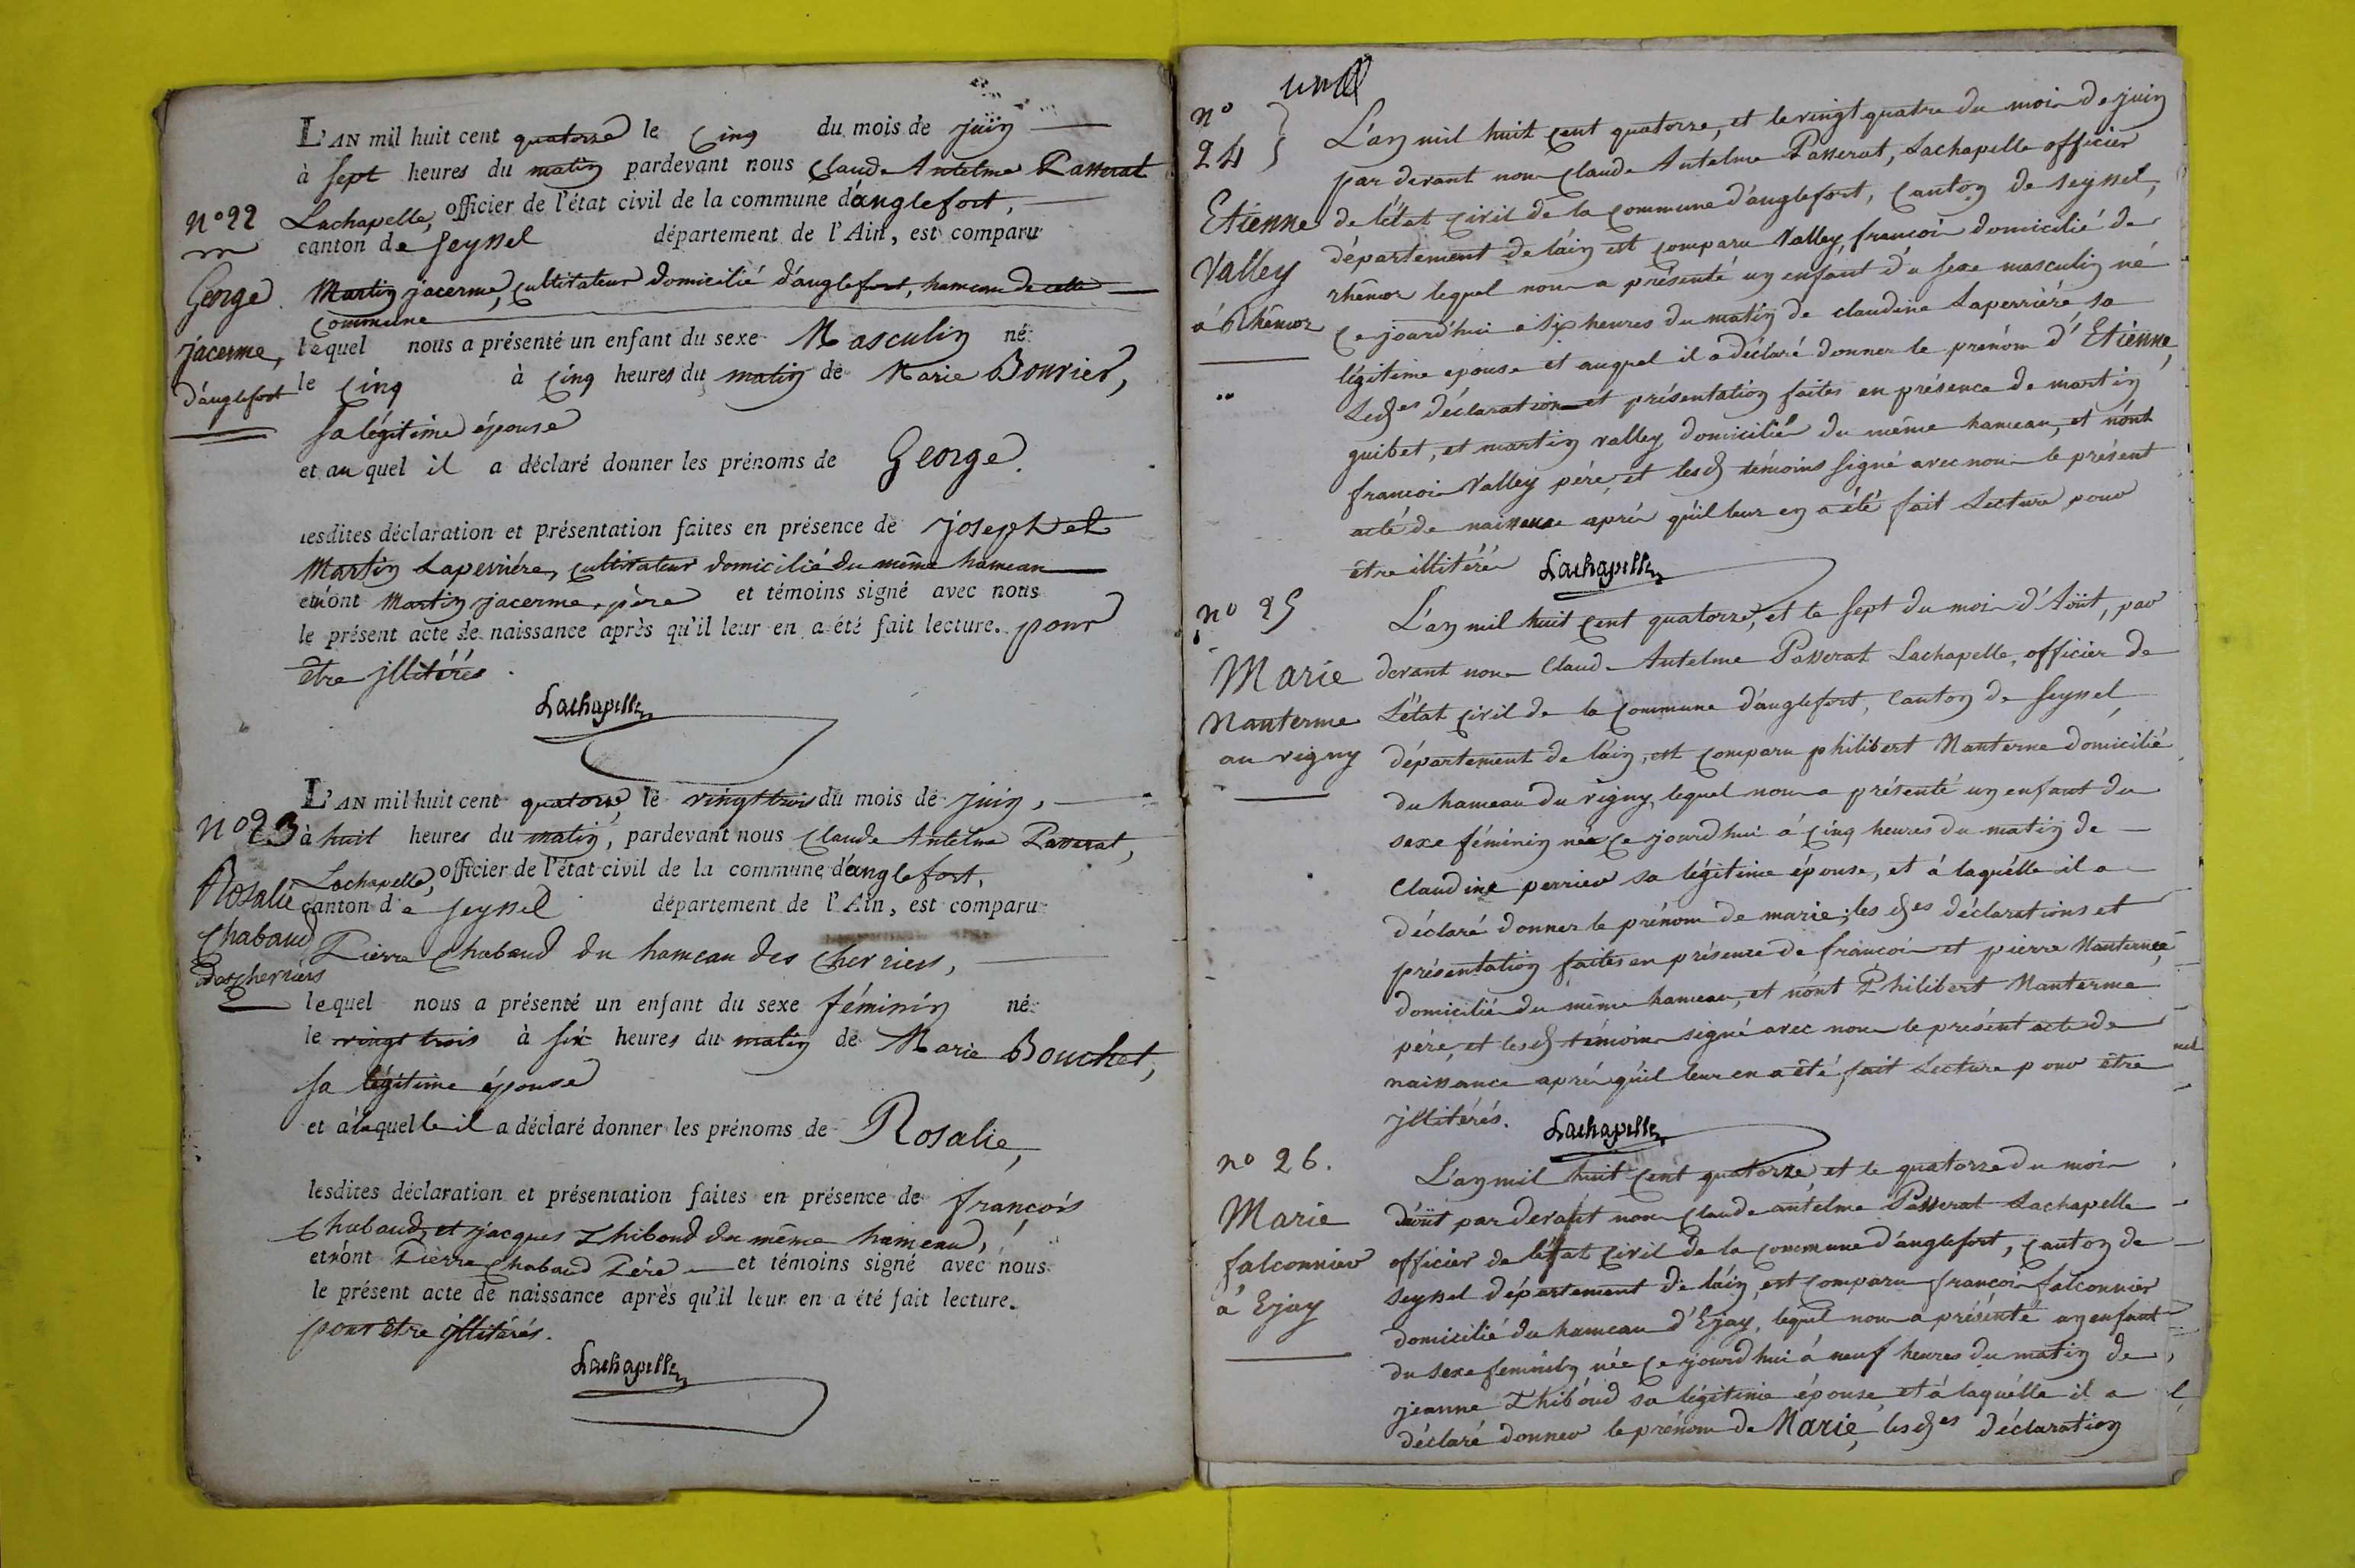 L'AN mil huit cent quatorze le cinq du mois de juin
à sept heures du matin pardevant nous Claude Antelme Passerat
Lachapelle, officier de l'état civil de la commune d'anglefort,
canton de seyssel département de l'Ain, est comparu
Martin jacerme, cultivateur domicilié d'anglefort, hameau de cette
commune
lequel nous a présenté un enfant du sexe Masculin né
le cinq à cinq heures du matin de Marie Bouvier,
sa légitime épouse
et au quel il a déclaré donner les prénoms de George.
lesdites déclaration et présentation faites en présence de joseph et
Martin Laperrière, cultivateur domicilié du même hameau
et n'ont Martin jacerme, père et témoins signé avec nous
le présent acte de naissance après qu'il leur en a été fait lecture. pour
être illitérés.
Lachapelle
N° 22
George
jacerme,
d'anglefort
L'AN mil huit cent quatorze, le vingt trois du mois de juin,
à huit heures du matin, pardevant nous Claude Antelme Passerat,
Lachapelle, officier de l'état civil de la commune d'anglefort,
canton de seyssel département de l'Ain, est comparu
Pierre Chabaud du hameau des cherriers,
lequel nous a présenté un enfant du sexe féminin né
le vingt trois à six heures du matin de Marie Bouchet,
sa légitime épouse
et à laquelle il a déclaré donner les prénoms de Rosalie,
lesdites déclaration et présentation faites en présence de françois
Chabaud, et jacques Thiboud du même hameau,
et n'ont Pierre Chabaud Père et témoins signé avec nous
le présent acte de naissance après qu'il leur en a été fait lecture.
pour être illitérés.
Lachapelle
N° 23
Rosalie
Chabaud
des cherriers
L'an mil huit cent quatorze, et le vingt quatre du mois de juin
par devant nous Claude Antelme Passerat, Lachapelle officier
de l'état civil de la commune d'anglefort, canton de seyssel,
département de l'ain est comparu Valley, francois domicilié de
rhêmoz lequel nous a présenté un enfant du sexe masculin né
ce jourd'hui à six heures du matin de claudine Laperrière, sa
légitime épouse et auquel il a déclaré donner le prénom d'Etienne,
Lesdes déclaration et présentation faites en présence de martin
guibet, et martin valley domiciliés du même hameau, et n'ont
francois Valley père, et lesd témoins signé avec nous le présent
acte de naissance après qu'il leur en a été fait Lecture, pour
être illitérés Lachapelle
n°
24
Etienne
Valley
à Rhêmoz
L'an mil huit cent quatorze, et le sept du mois d'Août, par
devant nous Claude Antelme Passerat Lachapelle, officier de
L'état civil de la commune d'anglefort, Canton de seyssel,
département de l'ain, est comparu philibert Nanterme domicilié
du hameau du vigny, lequel nous a présenté un enfant du
sexe féminin née ce jourd'hui à cinq heures du matin de
Claudine perrier sa légitime épouse, et à laquelle il a
déclaré donner le prénom de marie; lesdes déclarations et
présentation faites en présence de francois et pierre Nanterme,
domiciliés du même hameau, et n'ont Philibert Nanterme
père, et lesd témoins signé avec nous le présent acte de
naissance après qu'il leur en a été fait Lecture pour être
illitérés. Lachapelle
n° 25
Marie
Nanterme
au vigny
L'an mil huit cent quatorze, et le quatorze du mois
d'août par devant nous Claude antelme Passerat Lachapelle
officier de l'état civil de la commune d'anglefort, canton de
seyssel département de l'ain, est comparu francois falconnier
domicilié du hameau d'Ejay, lequel nous a présenté un enfant
du sexe féminin née ce jourd'hui à neuf heures du matin de
jeanne Thiboud sa légitime épouse, et à laquelle il a
déclaré donner le prénom de Marie, lesdes déclaration
n° 26.
Marie
falconnier
à Ejay